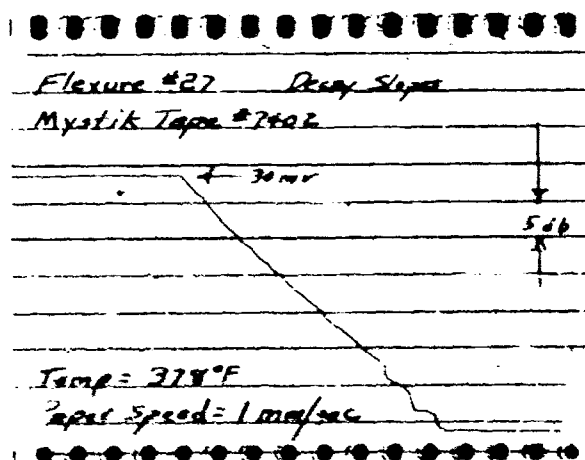 Flexure #27 Decay Slopes
Mystik Tape #7402
30 mv
5 db
Temp = 378°F
Paper Speed = 1 mm/sec